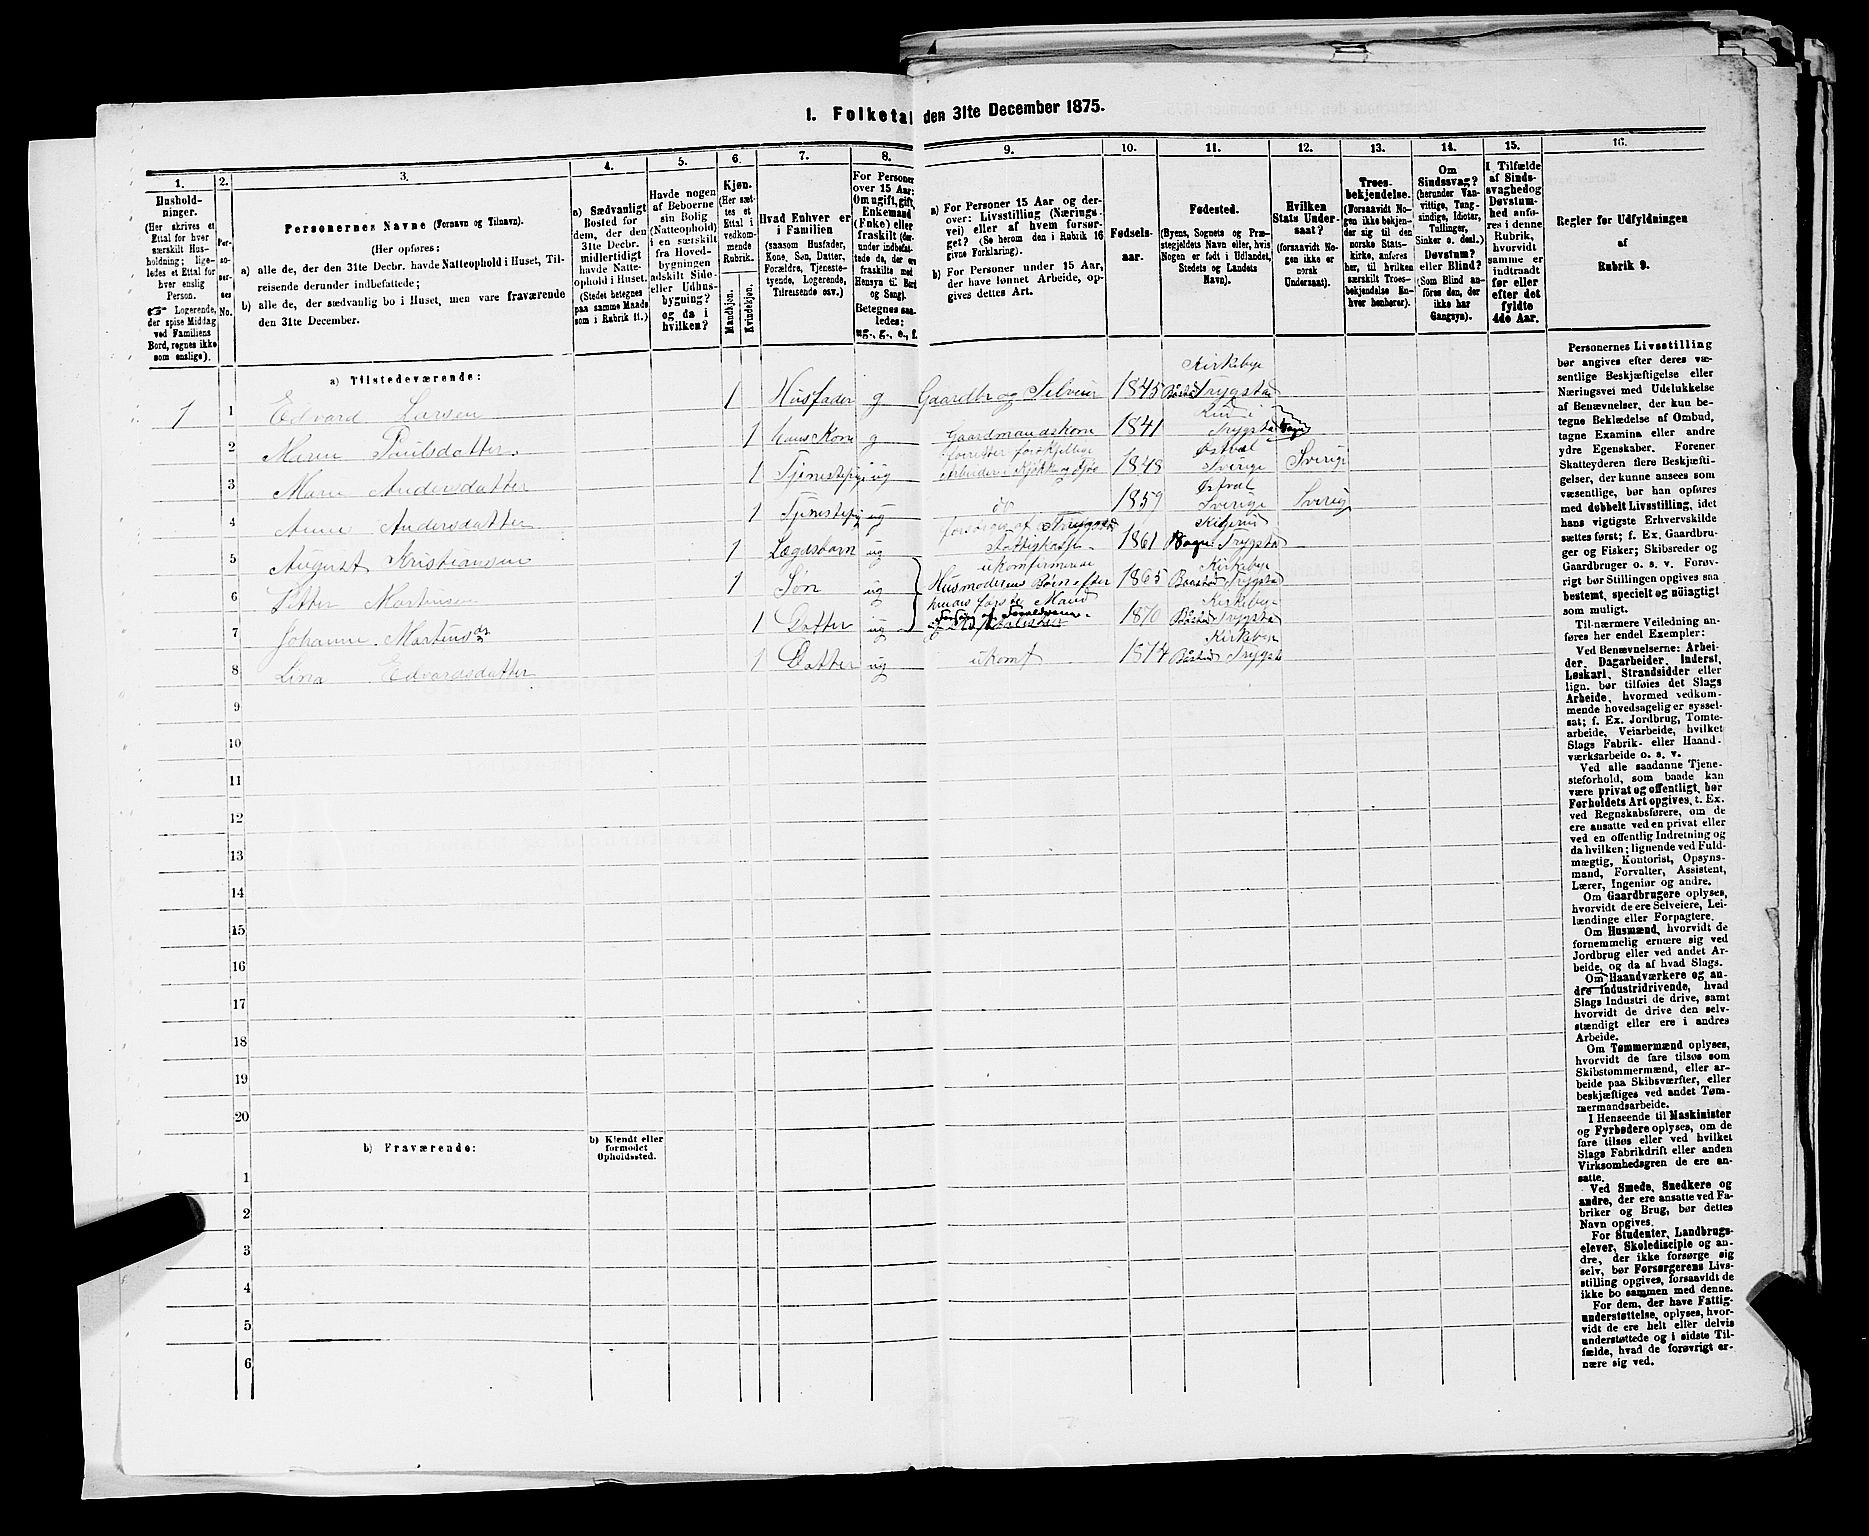 1. Folketal den 31te December 1875.
1.
Hushold-
ninger.
(Her skrives et
Ettal for hver
særskilt Hus-
holdning; lige-
ledes et Ettal for
hver enslig
Person.
Logerende,
der spise Middag
ved Familiens
Bord, regnes ikke
som enslige).
2.
Per-
so-
ner-
nes
No.
3.
Personernes Navne (Fornavn og Tilnavn).
(Her opføres:
a) alle de, der den 31te Decbr. havde Natteophold i Huset, Til-
reisende derunder indbefattede;
b) alle de, der sædvanlig bo i Huset, men vare fraværende
den 31te December.
4.
a) Sædvanligt
Bosted for
dem, der den
31te Decbr.
midlertidigt
havde Natte-
ophold i Huset.
(Stedet betegnes
paa samme Maade
som i Rubrik 11.)
5.
Havde nogen
af Beboerne
sin Bolig
(Natteophold)
i en særskilt
fra Hoved-
bygningen
adskilt Side-
eller Udhus-
bygning?
og da i
hvilken?
6.
Kjøn.
(Her sæt-
tes et
Ettal i
vedkom-
mende
Rubrik.
Mandkjøn.
Kvindekjøn.
7.
Hvad Enhver er
i Familien
(saasom Husfader,
Kone, Søn, Datter,
Forældre, Tjeneste-
tyende, Logerende,
Tilreisende osv.)
8.
For Personer
over 15 Aar:
Om ugift, gift,
Enkemand
(Enke) eller
fraskilt (der-
under indbefat-
tede de, der ere
fraskilte med
Hensyn til Bord
og Seng).
Betegnes saa-
ledes:
ug., g., e., f.
9.
a) For Personer 15 Aar og der-
over: Livsstilling (Nærings-
vei) eller af hvem forsør-
get? (Se herom den i Rubrik 16
givne Forklaring).
b) For Personer under 15 Aar,
der have lønnet Arbeide, op-
gives dettes Art.
10.
Fødsels-
aar.
11.
Fødested.
(Byens, Sognets og Præ-
stegjeldets Navn eller, hvis
Nogen er født i Udlandet,
Stedets og Landets
Navn).
12.
Hvilken
Stats Under-
saat?
(forsaavidt No-
gen ikke er
norsk
Undersaat).
13.
Troes-
bekjendelse.
(Forsaavidt No-
gen ikke bekjen-
der sig til den
norske Stats-
kirke, anføres
her, til hvilken
særskilt Troes-
bekjendelse En-
hver henhører).
14.
Om
Sindssvag?
(herunder Van-
vittige, Tung-
sindige, Idioter,
Tullinger,
Sinker o. desl.)
Døvstum?
eller Blind?
(Som Blind an-
føres den, der
ikke har
Gangsyn).
15.
I Tilfælde
af Sinds-
svaghed og
Døvstum-
hed anfø-
res i denne
Rubrik,
hvorvidt
samme er
indtraadt
før eller
efter det
fyldte
4de Aar.
16.
Regler for Udfyldningen
af
Rubrik 9.
a) Tilstedeværende:
1 1 Edvard Larsen 1 Husfader g Gaardbr og Selveier 1845 Kirkebye Båstad Trygstad
2 Maren Poulsdatter 1 hans Kone g Gaardmandskone 1841 Trygstad Sogn
3 Marie Andersdatter 1 Tjenestepige ug Forretter forskjellige Arbeider i Kjøkken og Fjøs 1848 Østvel Sverige Sverige
4 Anne Andersdatter 1 Tjenestepige ug do 1859 Østvel Sverige Sverige
5 August Kristiansen 1 Lægdsbarn ug forsørges af Trygstad Fattigkasse 1861 Sogn Trygstad
6 Petter Martinsen 1 Søn ug ukonfirmerede Husmoderens Børn efter 1865 Kirkebye Baastad Trygstad
7 Johanne Martinsdr 1 Datter ug hendes første Mand Forsørges af Forældrene 1870 Kirkebye Båstad Trygstad
8 Lina Edvardsdatter 1 Datter ug ukomf 1874 Kirkebye Båstad Trygsta
9
10
11
12
13
14
15
16
17
18
19
20
b) Fraværende:
b) Kjendt eller
formodet
Opholdssted.
1
2
3
4
5
6
Personernes Livsstilling
bør angives efter deres væ-
sentlige Beskjæftigelse eller
Næringsvei med Udelukkelse
af Benævnelser, der kun be-
tegne Beklædelse af Ombud,
tagne Examina eller andre
ydre Egenskaber. Forener
Skatteyderen flere Beskjæfti-
gelser, der kunne ansees som
væsentlige, bør han opføres
med dobbelt Livsstilling, idet
hans vigtigste Erhvervskilde
sættes først; f. Ex. Gaardbru-
ger og Fisker; Skibsreder og
Gaardbruger o. s. v. Forøv-
rigt bør Stillingen opgives saa
bestemt, specielt og nøiagtigt
som muligt.
Til nærmere Veiledning an-
føres her endel Exempler:
Ved Benævnelserne: Arbei-
der, Dagarbeider, Inderst,
Løskarl, Strandsidder eller
lign. bør tilføies det Slags
Arbeide, hvormed vedkom-
mende hovedsagelig er syssel-
sat; f. Ex. Jordbrug, Tomte-
arbeide, Veiarbeide, hvilket
Slags Fabrik- eller Haand-
værksarbeide o. s. v.
Ved alle saadanne Tjene-
steforhold, som baade kan
være privat og offentligt, bør
Forholdets Art opgives, t. Ex.
ved Regnskabsførere, om de
ere ansatte ved en privat eller
ved en offentlig Indretning og
da hvilken; lignende ved Fuld-
mægtig, Kontorist, Opsyns-
mand, Forvalter, Assistent,
Lærer, Ingeniør og andre.
Om Gaardbrugere oplyses,
hvorvidt de ere Selveiere, Lei-
lændinge eller Forpagtere.
Om Husmænd, hvorvidt de
fornemmelig ernære sig ved
Jordbrug eller ved andet Ar-
beide, og da af hvad Slags.
Om Haandværkere og an-
dre Industridrivende, hvad
Slags Industri de drive, samt
hvorvidt de drive den selv-
stændigt eller ere i andres
Arbeide.
Om Tømmermænd oplyses,
hvorvidt de fare tilsøs som
Skibstømmermænd, eller ar-
beide paa Skibsværfter, eller
beskjæftiges ved andet Tøm-
mermandsarbeide.
I Henseende til Maskinister
og Fyrbødere oplyses, om de
fare tilsøs eller ved hvilket
Slags Fabrikdrift eller anden
Virksomhedsgren de ere an-
satte.
Ved Smede, Snedkere og
andre, der ere ansatte ved Fa-
briker og Brug, bør dettes
Navn opgives.
For Studenter, Landbrugs-
elever, Skoledisciple og an-
dre, der ikke forsørge sig
selv, bør Forsørgerens Livs-
stilling opgives, forsaavidt de
ikke bo sammen med denne.
For dem, der have Fattig-
understøttelse, oplyses, hvor-
vidt de ere helt eller delvis
understøttede og i sidste Til-
fælde, hvad de forøvrigt er-
nære sig ved.